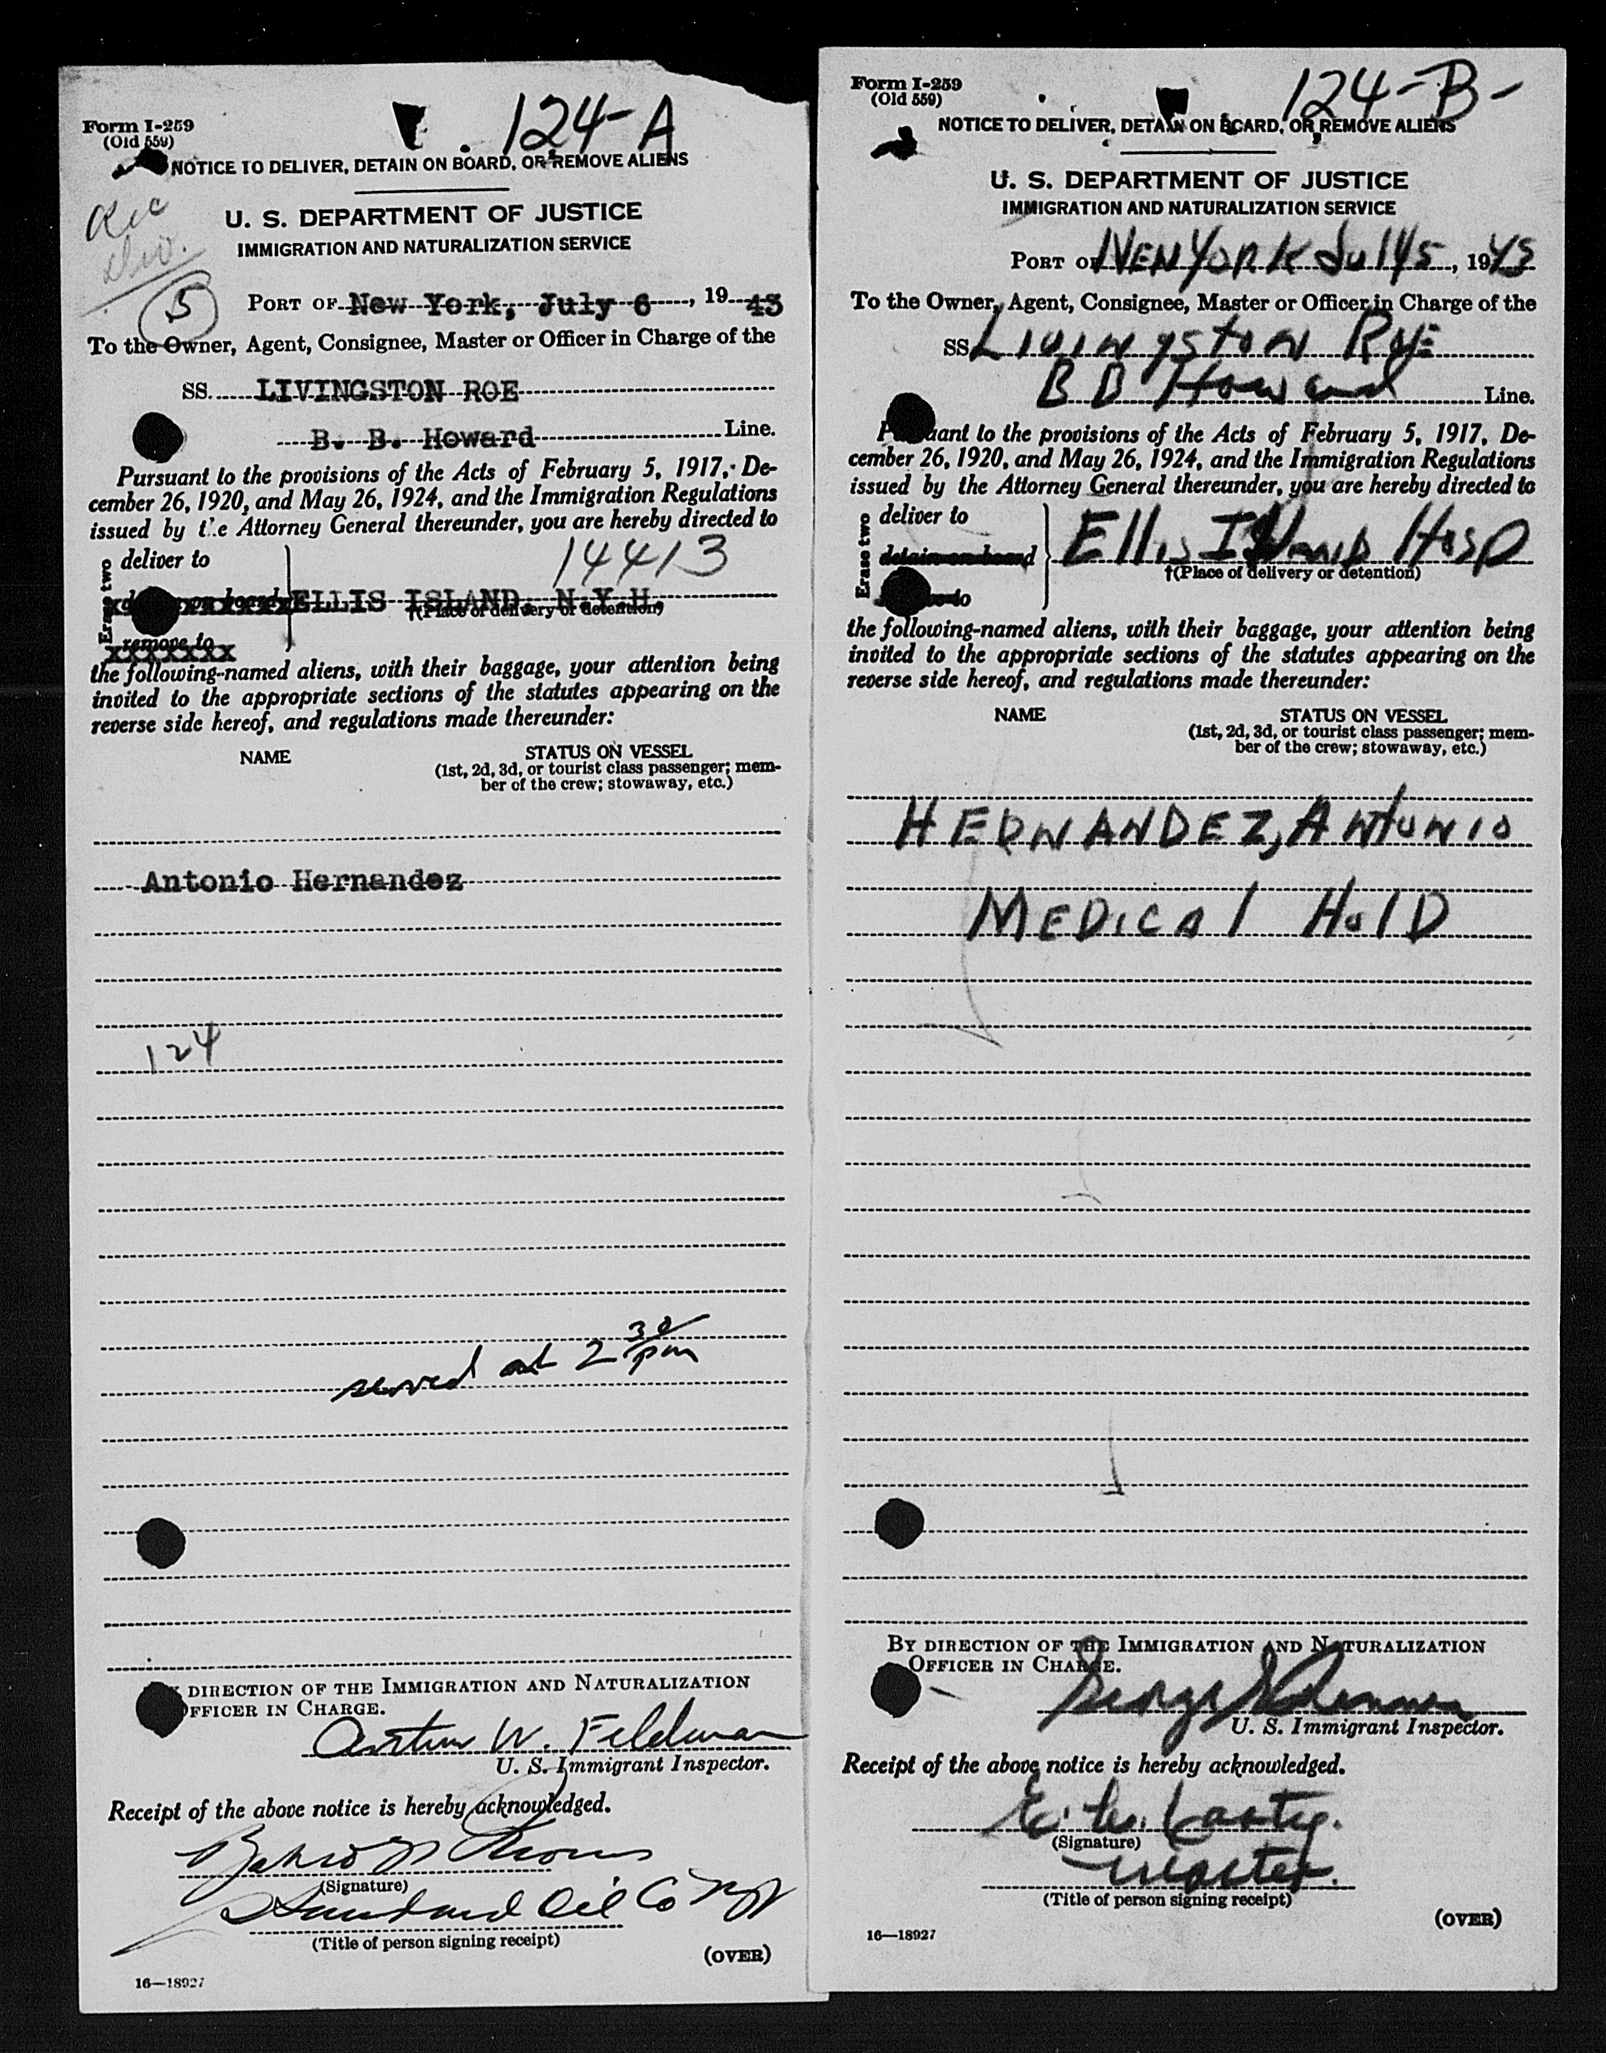 124-A
Form I-259
(Old 559)
NOTICE TO DELIVER, DETAIN ON BOARD, OR REMOVE ALIENS
Rec
Div.
5
U. S. DEPARTMENT OF JUSTICE
IMMIGRATION AND NATURALIZATION SERVICE
PORT OF New York, July 6, 1943
To the Owner, Agent, Consignee, Master or Officer in Charge of the
SS. LIVINGSTON ROE
B. B. Howard Line.
Pursuant to the provisions of the Acts of February 5, 1917, De-
cember 26, 1920, and May 26, 1924, and the Immigration Regulations
issued by the Attorney General thereunder, you are hereby directed to
14413
Erase two
deliver to
ELLIS ISLAND, N.Y.H.
†(Place of delivery or detention)
remove to
the following-named aliens, with their baggage, your attention being
invited to the appropriate sections of the statutes appearing on the
reverse side hereof, and regulations made thereunder:
NAME STATUS ON VESSEL
(1st, 2d, 3d, or tourist class passenger; mem-
ber of the crew; stowaway, etc.)
Antonio Hernandez
124
served at 2 30 pm
DIRECTION OF THE IMMIGRATION AND NATURALIZATION
OFFICER IN CHARGE.
W. Feldman
U. S. Immigrant Inspector.
Receipt of the above notice is hereby acknowledged.
(Signature)
Standard Oil Co NJ
(Title of person signing receipt)
(OVER)
16—18927
124-B-
Form I-259
(Old 559)
NOTICE TO DELIVER, DETAIN ON BOARD, OR REMOVE ALIENS
U. S. DEPARTMENT OF JUSTICE
IMMIGRATION AND NATURALIZATION SERVICE
PORT OF NEW YORK July 5, 1943
To the Owner, Agent, Consignee, Master or Officer in Charge of the
SS Livingston Roe
B B Howard Line.
Pursuant to the provisions of the Acts of February 5, 1917, De-
cember 26, 1920, and May 26, 1924, and the Immigration Regulations
issued by the Attorney General thereunder, you are hereby directed to
Erase two
deliver to
detain on board
Ellis Island Hosp
†(Place of delivery or detention)
to
the following-named aliens, with their baggage, your attention being
invited to the appropriate sections of the statutes appearing on the
reverse side hereof, and regulations made thereunder:
NAME STATUS ON VESSEL
(1st, 2d, 3d, or tourist class passenger; mem-
ber of the crew; stowaway, etc.)
HERNANDEZ, ANTONIO
MEDICAL HOLD
BY DIRECTION OF THE IMMIGRATION AND NATURALIZATION
OFFICER IN CHARGE.
George
U. S. Immigrant Inspector.
Receipt of the above notice is hereby acknowledged.
(Signature)
Master.
(Title of person signing receipt)
(OVER)
16—18927